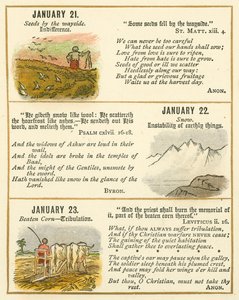 JANUARY 21.
Seeds by the wayside.
Indifference.
"Some seeds fell by the wayside."
ST. MATT. xiii. 4.
We can never be too careful
What the seed our hands shall sow;
Love from love is sure to ripen,
Hate from hate is sure to grow.
Seeds of good or ill we scatter
Heedlessly along our way:
But a glad or grievous fruitage
Waits us at the harvest day.
ANON.
"He giveth snow like wool: He scattereth
the hoarfrost like ashes.—He sendeth out His
word, and melteth them."
PSALM cxlvii. 16-18.
And the widows of Ashur are loud in their
wail,
And the idols are broke in the temples of
Baal,
And the might of the Gentiles, unsmote by
the sword,
Hath vanished like snow in the glance of the
Lord.
BYRON.
JANUARY 22.
Snow.
Instability of earthly things.
JANUARY 23.
Beaten Corn—Tribulation.
"And the priest shall burn the memorial of
it, part of the beaten corn thereof."
LEVITICUS ii. 16.
What, if thou ALWAYS suffer tribulation,
And if thy Christian warfare NEVER cease;
The gaining of the quiet habitation
Shall gather thee to everlasting peace.
The captive's oar may pause upon the galley,
The soldier sleep beneath his plumed crest,
And peace may fold her wings o'er hill and
valley,
But thou, O Christian, must not take thy
rest.
ANON.